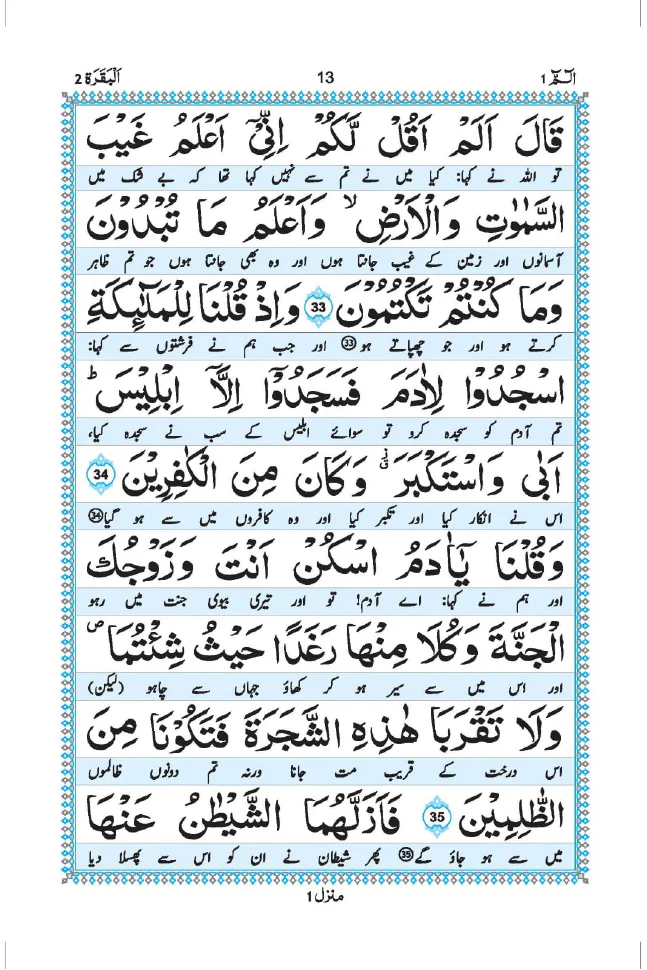 الٓمّٓ 1 13 اَلْبَقَرَة 2
قَالَ اَلَمْ اَقُلْ لَّكُمْ اِنِّیْۤ اَعْلَمُ غَیْبَ
تو اللہ نے کہا: کیا میں نے تم سے نہیں کہا تھا کہ بے شک میں
السَّمٰوٰتِ وَالْاَرْضِ ۙ وَاَعْلَمُ مَا تُبْدُوْنَ
آسمانوں اور زمین کے غیب جانتا ہوں اور وہ بھی جانتا ہوں جو تم ظاہر
وَمَا كُنْتُمْ تَكْتُمُوْنَ 33 وَاِذْ قُلْنَا لِلْمَلٰٓىِٕكَةِ
کرتے ہو اور جو چھپاتے ہو 33 اور جب ہم نے فرشتوں سے کہا:
اسْجُدُوْا لِاٰدَمَ فَسَجَدُوْۤا اِلَّاۤ اِبْلِیْسَ ؕ
تم آدم کو سجدہ کرو تو سوائے ابلیس کے سب نے سجدہ کیا،
اَبٰی وَاسْتَكْبَرَ ۗ٘ وَكَانَ مِنَ الْكٰفِرِیْنَ 34
اس نے انکار کیا اور تکبر کیا اور وہ کافروں میں سے ہو گیا 34
وَقُلْنَا یٰۤاٰدَمُ اسْكُنْ اَنْتَ وَزَوْجُكَ
اور ہم نے کہا: اے آدم! تو اور تیری بیوی جنت میں رہو
الْجَنَّةَ وَكُلَا مِنْهَا رَغَدًا حَیْثُ شِئْتُمَا ۪
اور اس میں سے سیر ہو کر کھاؤ جہاں سے چاہو (لیکن)
وَلَا تَقْرَبَا هٰذِهِ الشَّجَرَةَ فَتَكُوْنَا مِنَ
اس درخت کے قریب مت جانا ورنہ تم دونوں ظالموں
الظّٰلِمِیْنَ 35 فَاَزَلَّهُمَا الشَّیْطٰنُ عَنْهَا
میں سے ہو جاؤ گے 35 پھر شیطان نے ان کو اس سے پھسلا دیا
منزل 1